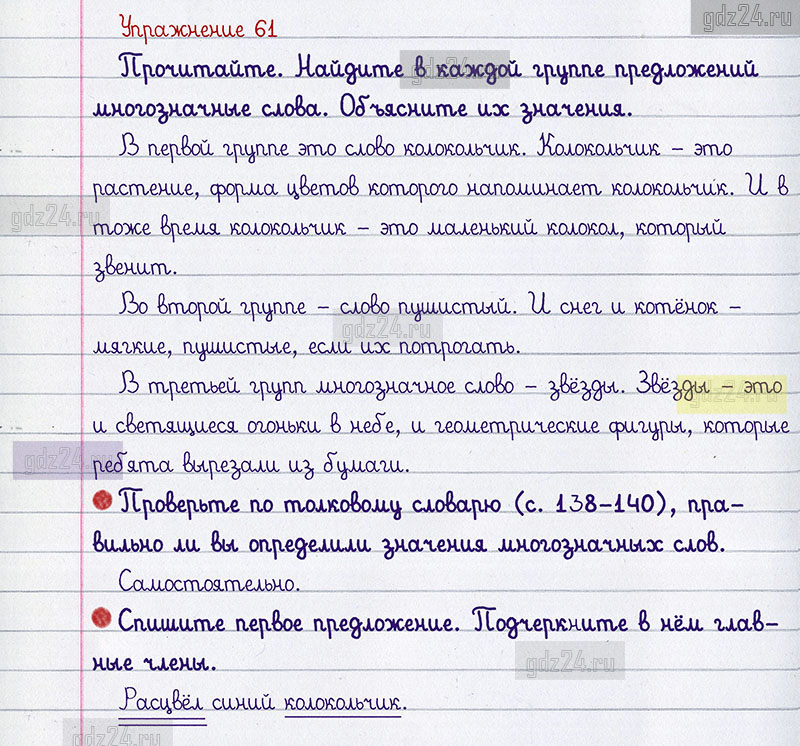 gdz24.ru
Упражнение 61
Прочитайте. Найдите в каждой группе предложений
многозначные слова. Объясните их значения.
В первой группе это слово колокольчик. Колокольчик – это
растение, форма цветов которого напоминает колокольчик. И в
тоже время колокольчик – это маленький колокол, который
звенит.
Во второй группе – слово пушистый. И снег и котёнок –
мягкие, пушистые, если их потрогать.
В третьей групп многозначное слово – звёзды. Звёзды – это
и светящиеся огоньки в небе, и геометрические фигуры, которые
ребята вырезали из бумаги.
Проверьте по толковому словарю (с. 138–140), пра–
вильно ли вы определили значения многозначных слов.
Самостоятельно.
Спишите первое предложение. Подчеркните в нём глав–
ные члены.
Расцвёл синий колокольчик.
gdz24.ru
gdz24.ru
gdz24.ru
gdz24.ru
gdz24.ru
gdz24.ru
gdz24.ru